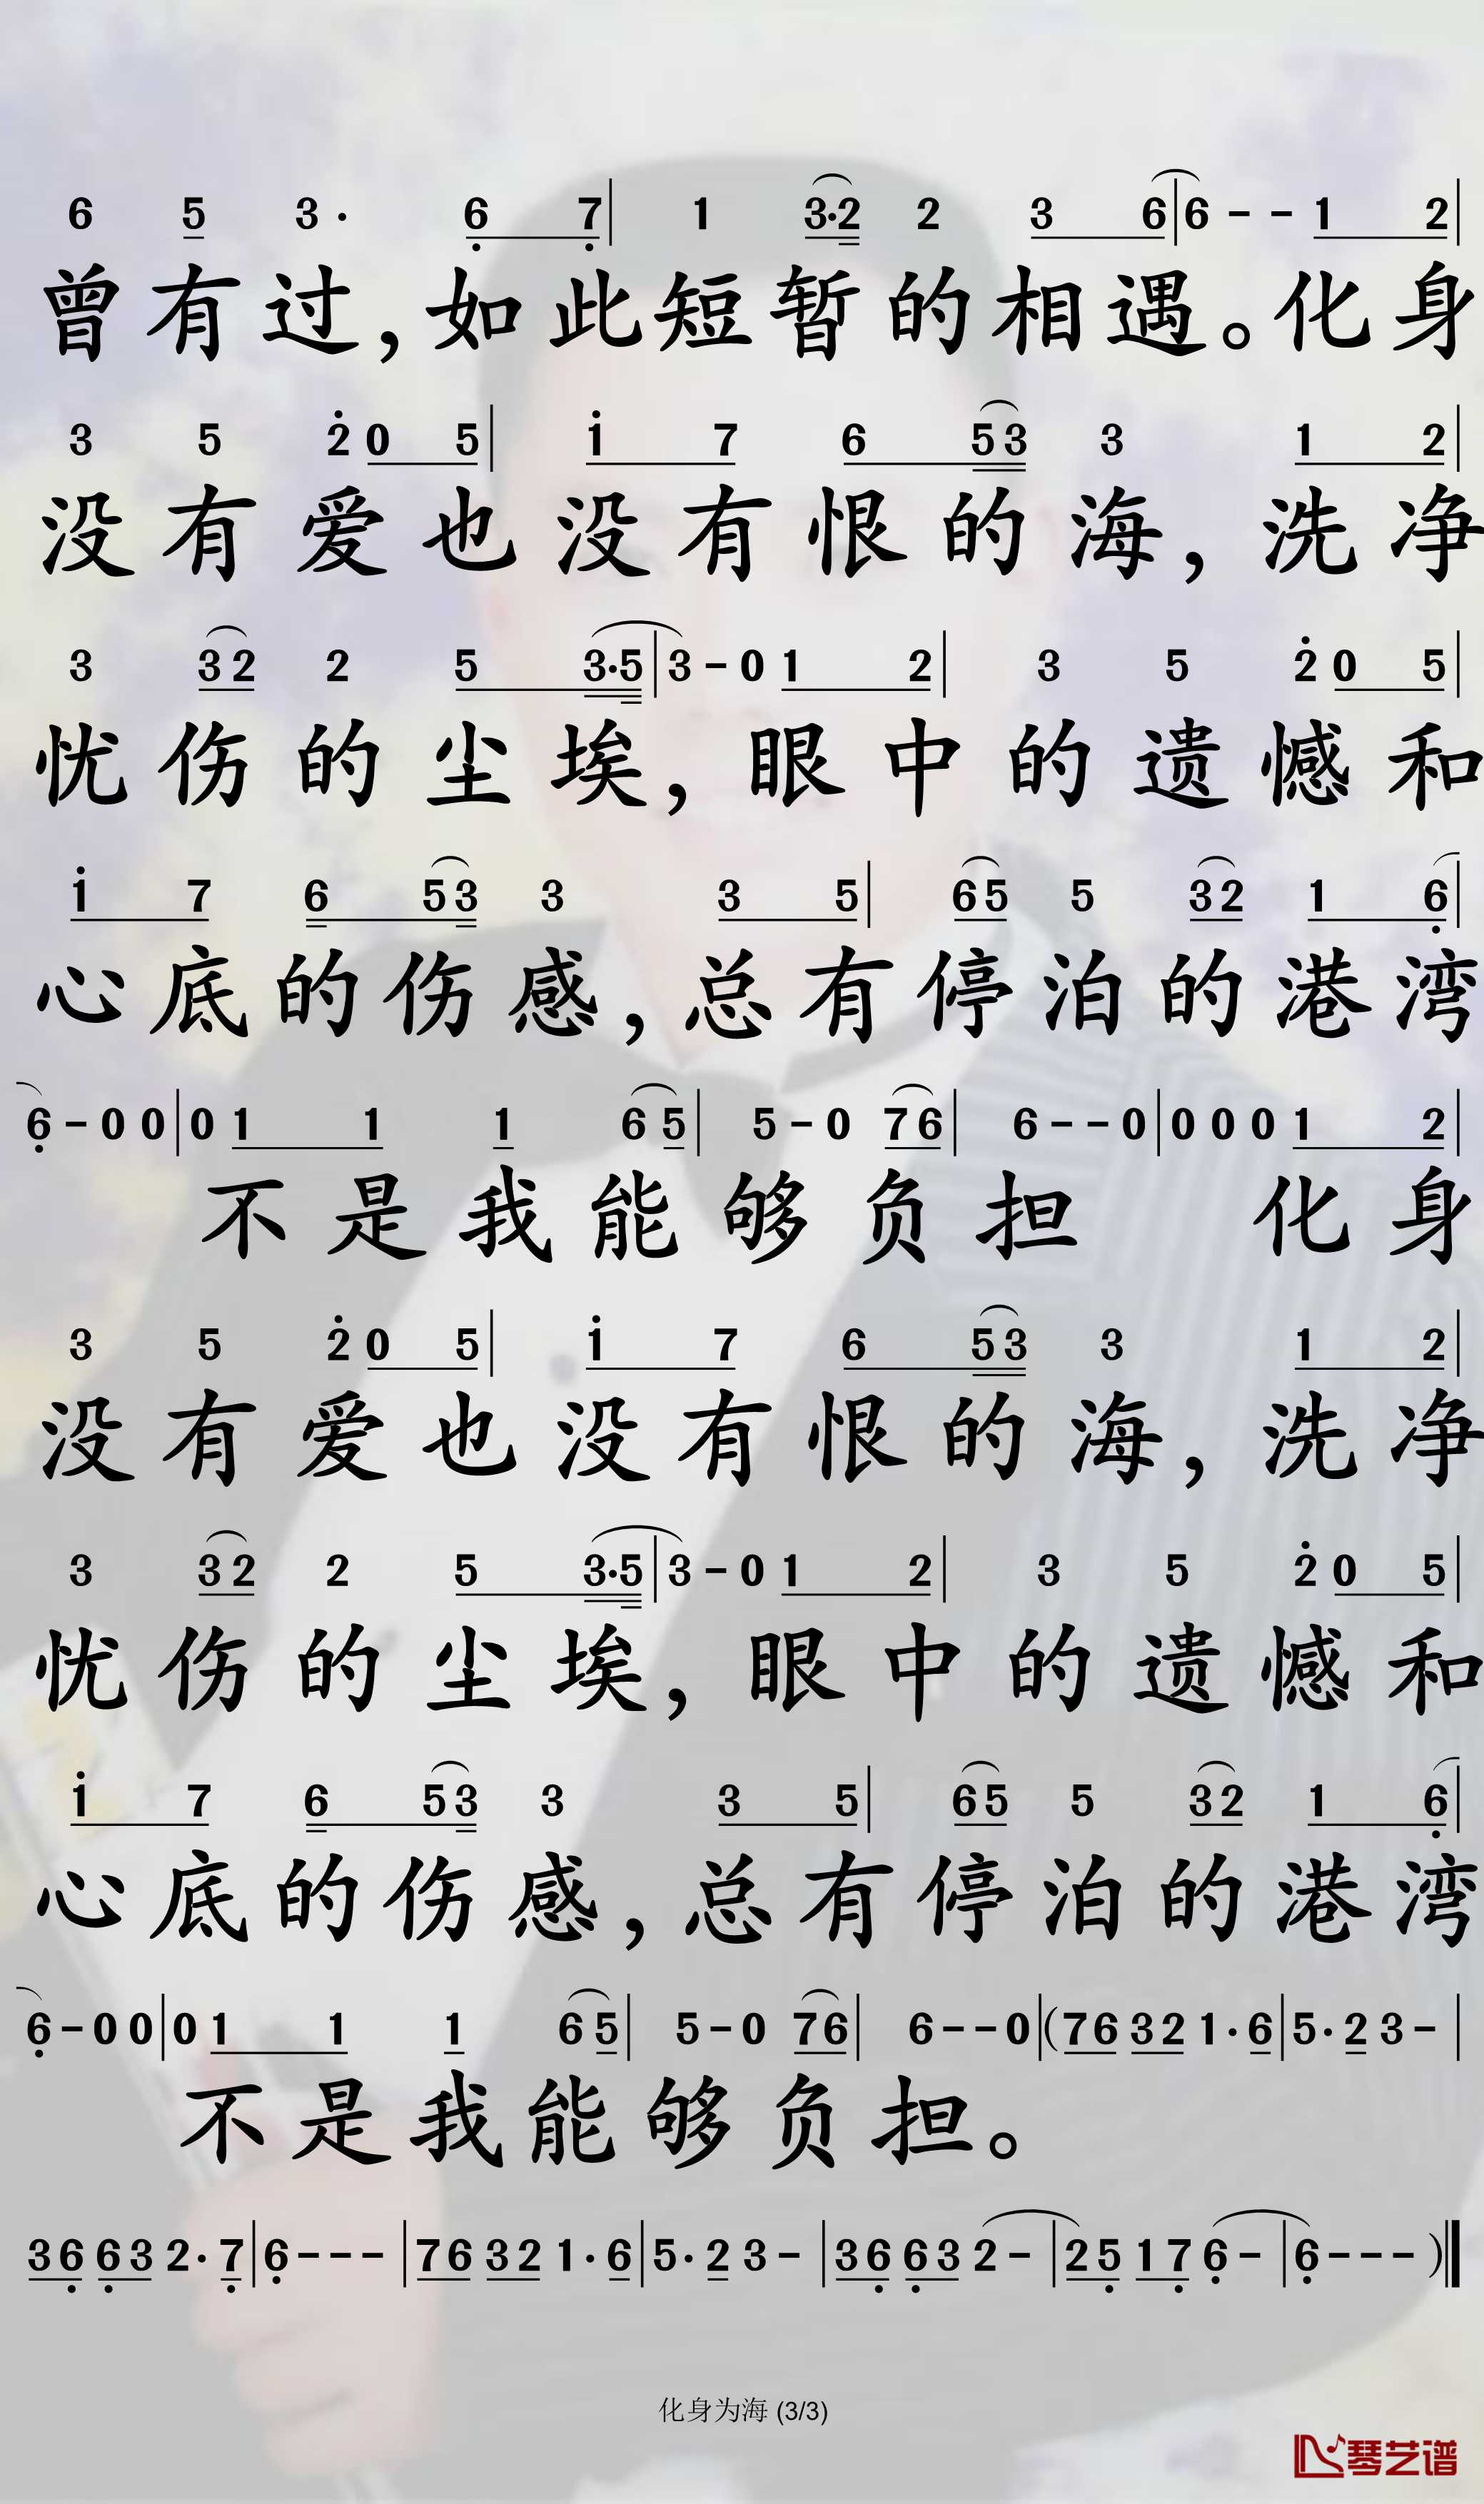 6 5 3· 6 7| 1 3·2 2 3 6|6 - - 1 2|
曾有过,如此短暂的相遇。化身
3 5 2 0 5| 1 7 6 5 3 3 1 2|
没有爱也没有恨的海,洗净
3 3 2 2 5 3·5|3 - 0 1 2| 3 5 2 0 5|
忧伤的尘埃,眼中的遗憾和
1 7 6 5 3 3 3 5| 6 5 5 3 2 1 6|
心底的伤感,总有停泊的港湾
6 - 0 0|0 1 1 1 6 5| 5 - 0 7 6| 6 - - 0|0 0 0 1 2|
不是我能够负担 化身
3 5 2 0 5| 1 7 6 5 3 3 1 2|
没有爱也没有恨的海,洗净
3 3 2 2 5 3·5|3 - 0 1 2| 3 5 2 0 5|
忧伤的尘埃,眼中的遗憾和
1 7 6 5 3 3 3 5| 6 5 5 3 2 1 6|
心底的伤感,总有停泊的港湾
6 - 0 0|0 1 1 1 6 5| 5 - 0 7 6| 6 - - 0|(7 6 3 2 1· 6|5· 2 3 - |
不是我能够负担。
3 6 6 3 2· 7|6 - - - |7 6 3 2 1· 6|5· 2 3 - |3 6 6 3 2 - |2 5 1 7 6 - |6 - - - )‖
化身为海 (3/3)
琴艺谱